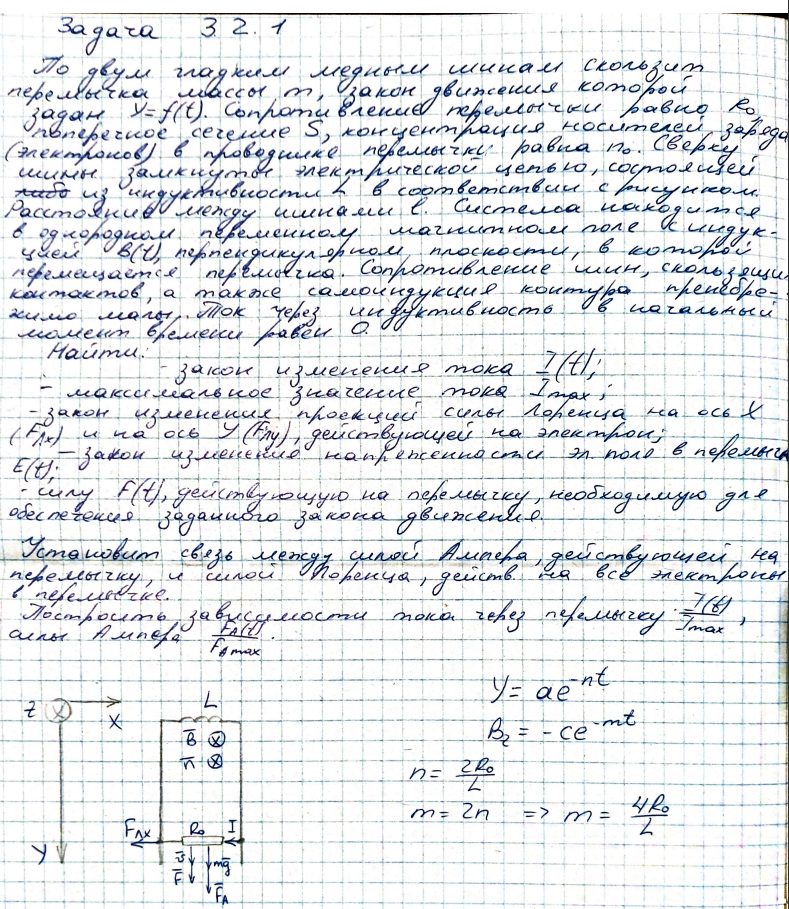 Задача 3.2.1
По двум гладким медным шинам скользит
перемычка массы m, закон движения которой
задан y=f(t). Сопротивление перемычки равно R₀,
поперечное сечение S, концентрация носителей заряда
(электронов) в проводнике перемычки равна n₀. Сверху
шины замкнуты электрической цепью, состоящей
либо из индуктивности L в соответствии с рисунком.
Расстояние между шинами l. Система находится
в однородном переменном магнитном поле с индук-
цией B(t), перпендикулярном плоскости, в которой
перемещается перемычка. Сопротивление шин, скользящих
контактов, а также самоиндукция контура пренебре-
жимо малы. Ток через индуктивность в начальный
момент времени равен 0.
Найти:
- закон изменения тока I(t);
- максимальное значение тока Imax;
- закон изменения проекций силы Лоренца на ось X
(Fлx) и на ось Y (Fлy), действующей на электрон;
- закон изменения напряженности эл. поле в перемычк
E(t);
- силу F(t), действующую на перемычку, необходимую для
обеспечения заданного закона движения.
Установит связь между силой Ампера, действующей на
перемычку, и силой Лоренца, действ. на все электроны
в перемычке.
Построить зависимости тока через перемычку I(t)/Imax,
силы Ампера FA(t)/FAmax.
Z X L
Y = ae^-nt
B̄
n̄
B_z = -ce^-mt
n = 2R₀/L
m = 2n => m = 4R₀/L
Fлx R₀ I
Y v̄ mḡ
F̄ F̄A